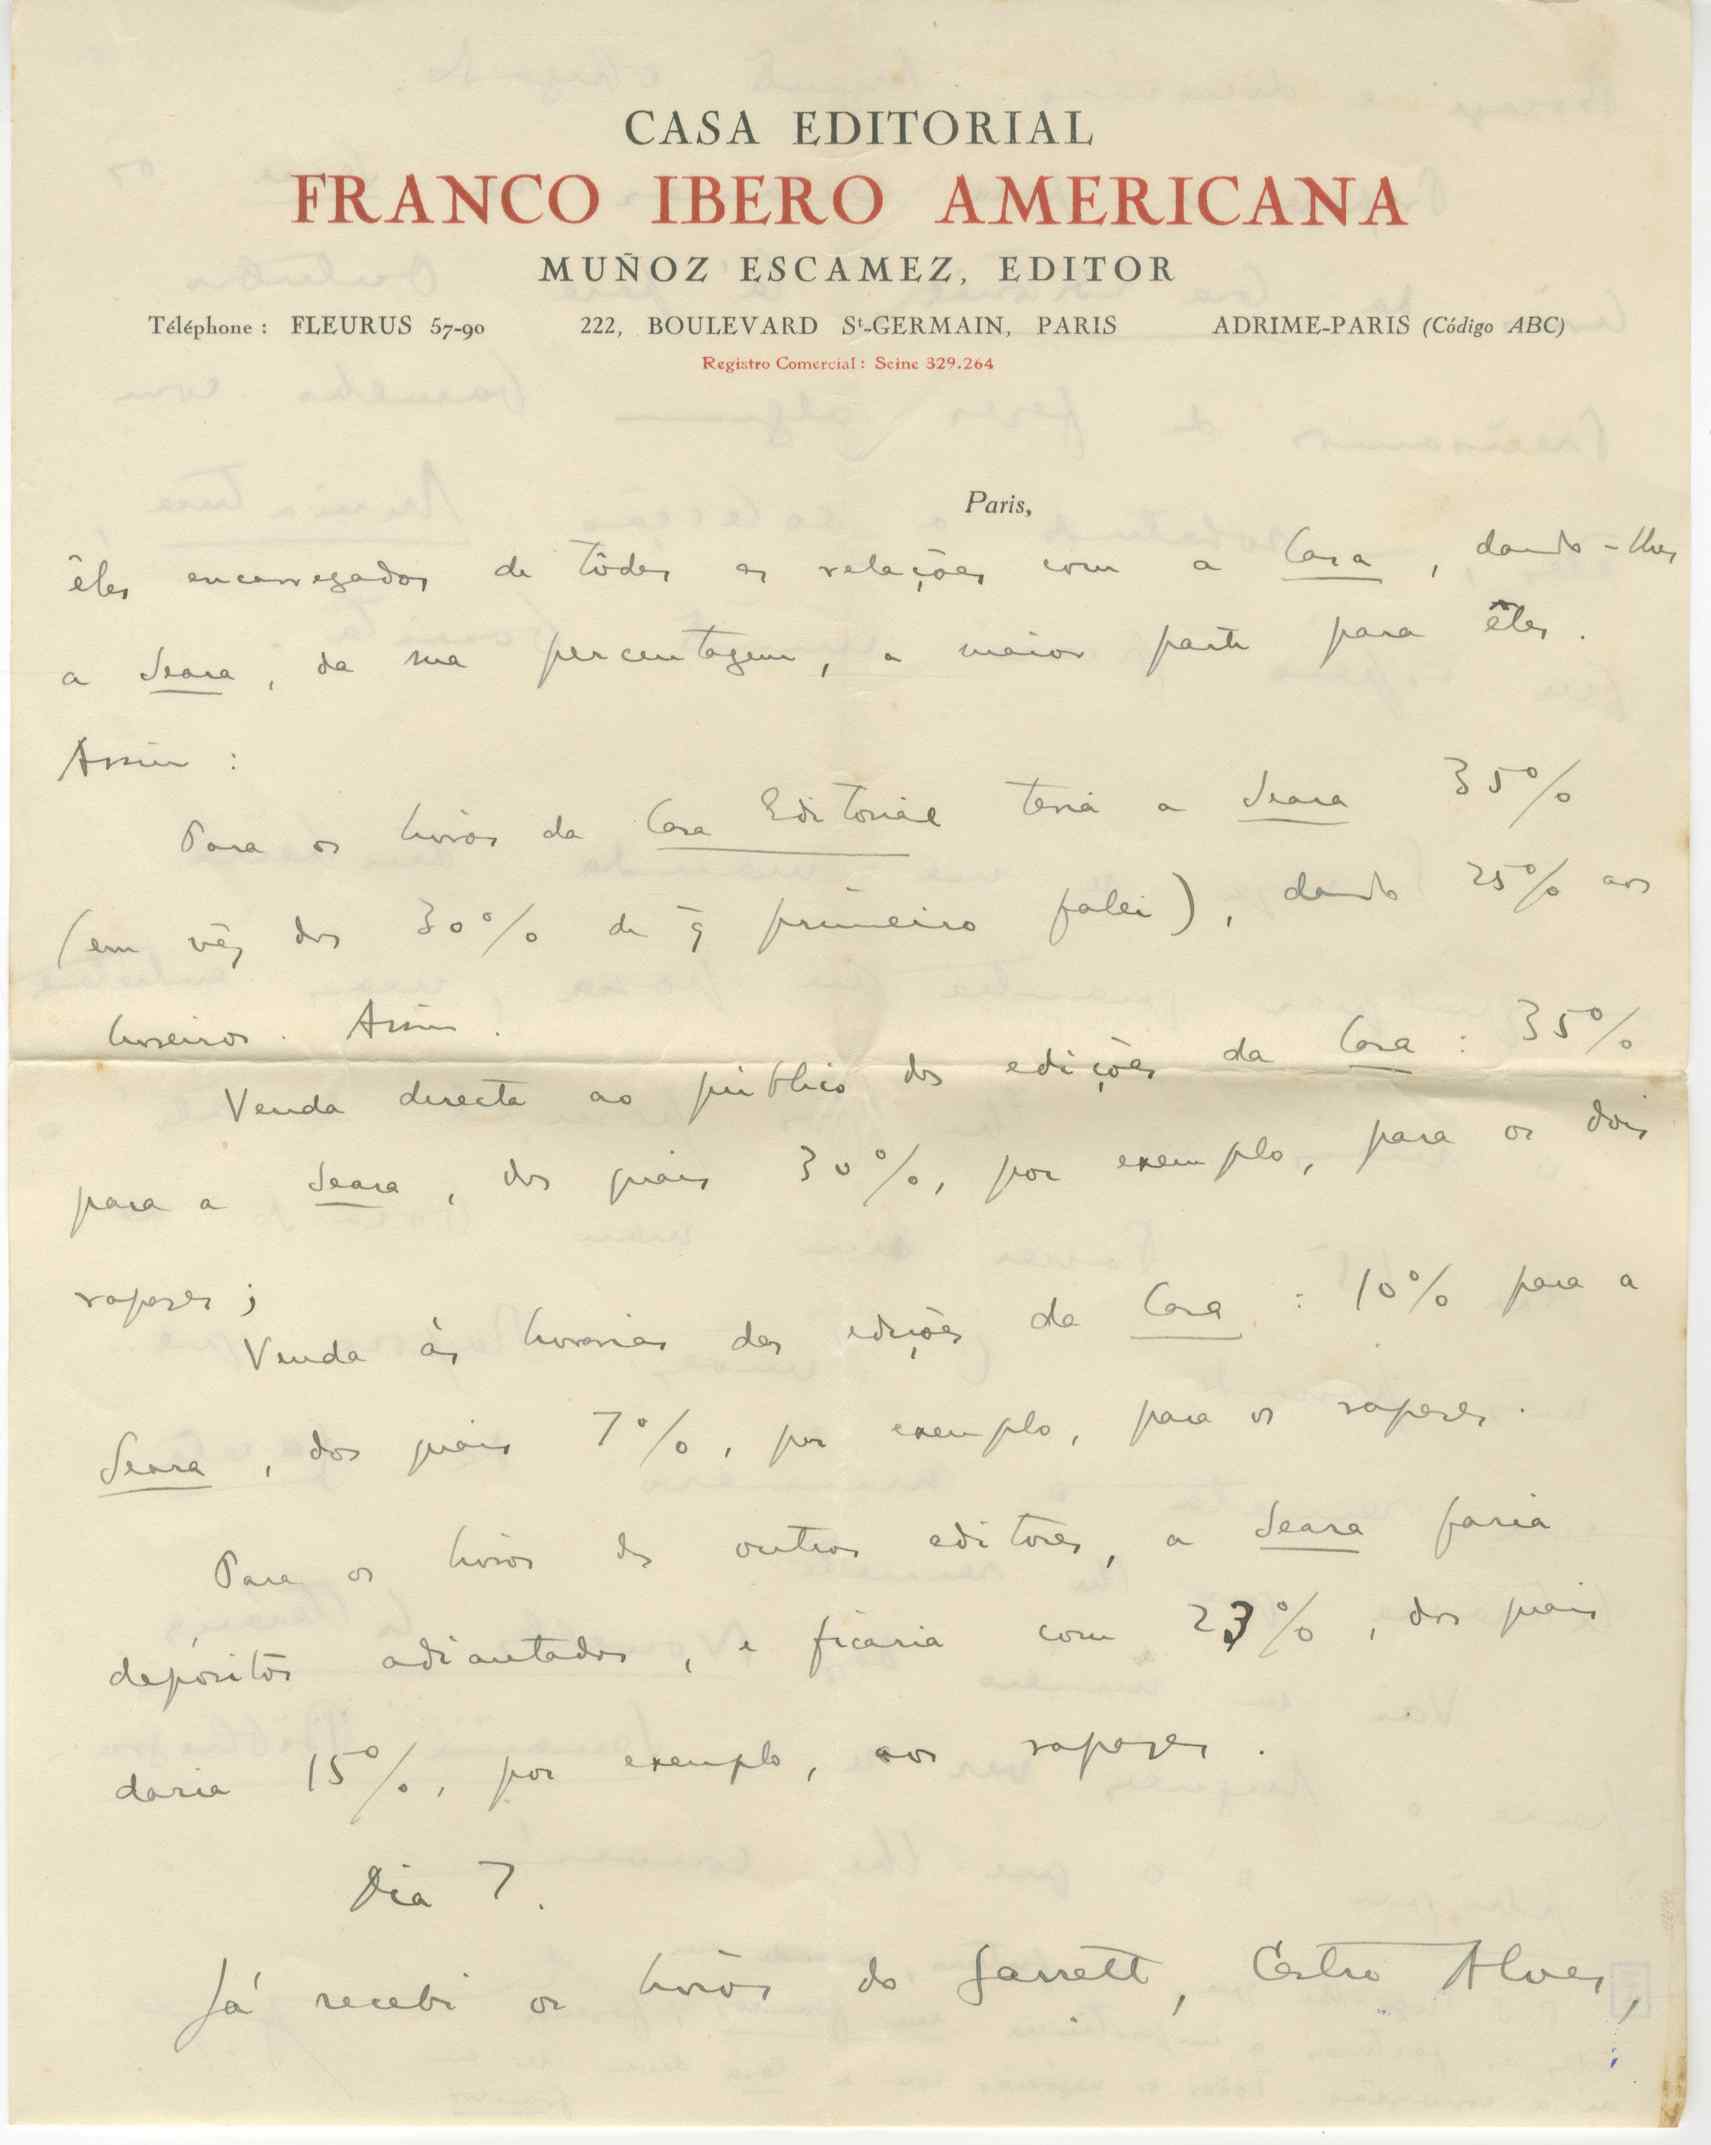 CASA EDITORIAL
FRANCO IBERO AMERICANA
MUÑOZ ESCAMEZ, EDITOR
Téléphone : FLEURUS 57-90 222, BOULEVARD St-GERMAIN, PARIS ADRIME-PARIS (Código ABC)
Registro Comercial : Seine 329.264
Paris,
êles encarregados de tôdas as relações com a Casa, dando-lhes
a Seara, da sua percentagem, a maior parte para êles.
Assim :
Para os livros da Casa Editorial teria a Seara 35%
(em vêz dos 30% de q̃ primeiro falei), dando 25% aos
livreiros. Assim.
Venda directa ao público das edições da Casa : 35%
para a Seara, dos quais 30%, por exemplo, para os dois
rapazes ;
Venda às livrarias das edições da Casa : 10% para a
Seara, dos quais 7%, por exemplo, para os rapazes.
Para os livros de outros editores, a Seara faria
depósitos adiantados, e ficaria com 23%, dos quais
daria 15%, por exemplo, aos rapazes.
Dia 7.
Já recebi os livros do Garrett, Castro Alves,